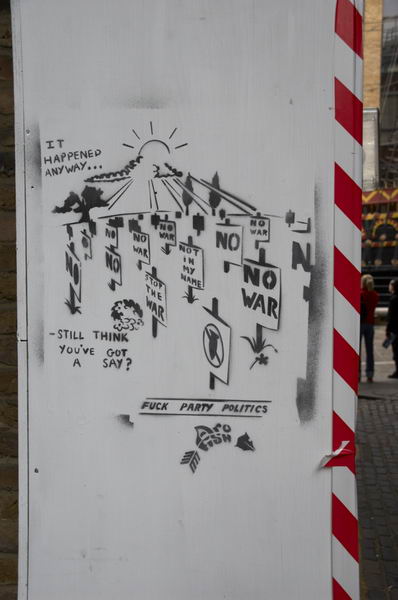 IT
HAPPENED
ANYWAY...
NO
WAR
NO
WAR
NO
WAR
NO
NO
WAR
NO
NOT
IN MY
NAME
NO
STOP
THE
WAR
NO
WAR
-STILL THINK
YOU'VE GOT
A SAY?
FUCK PARTY POLITICS